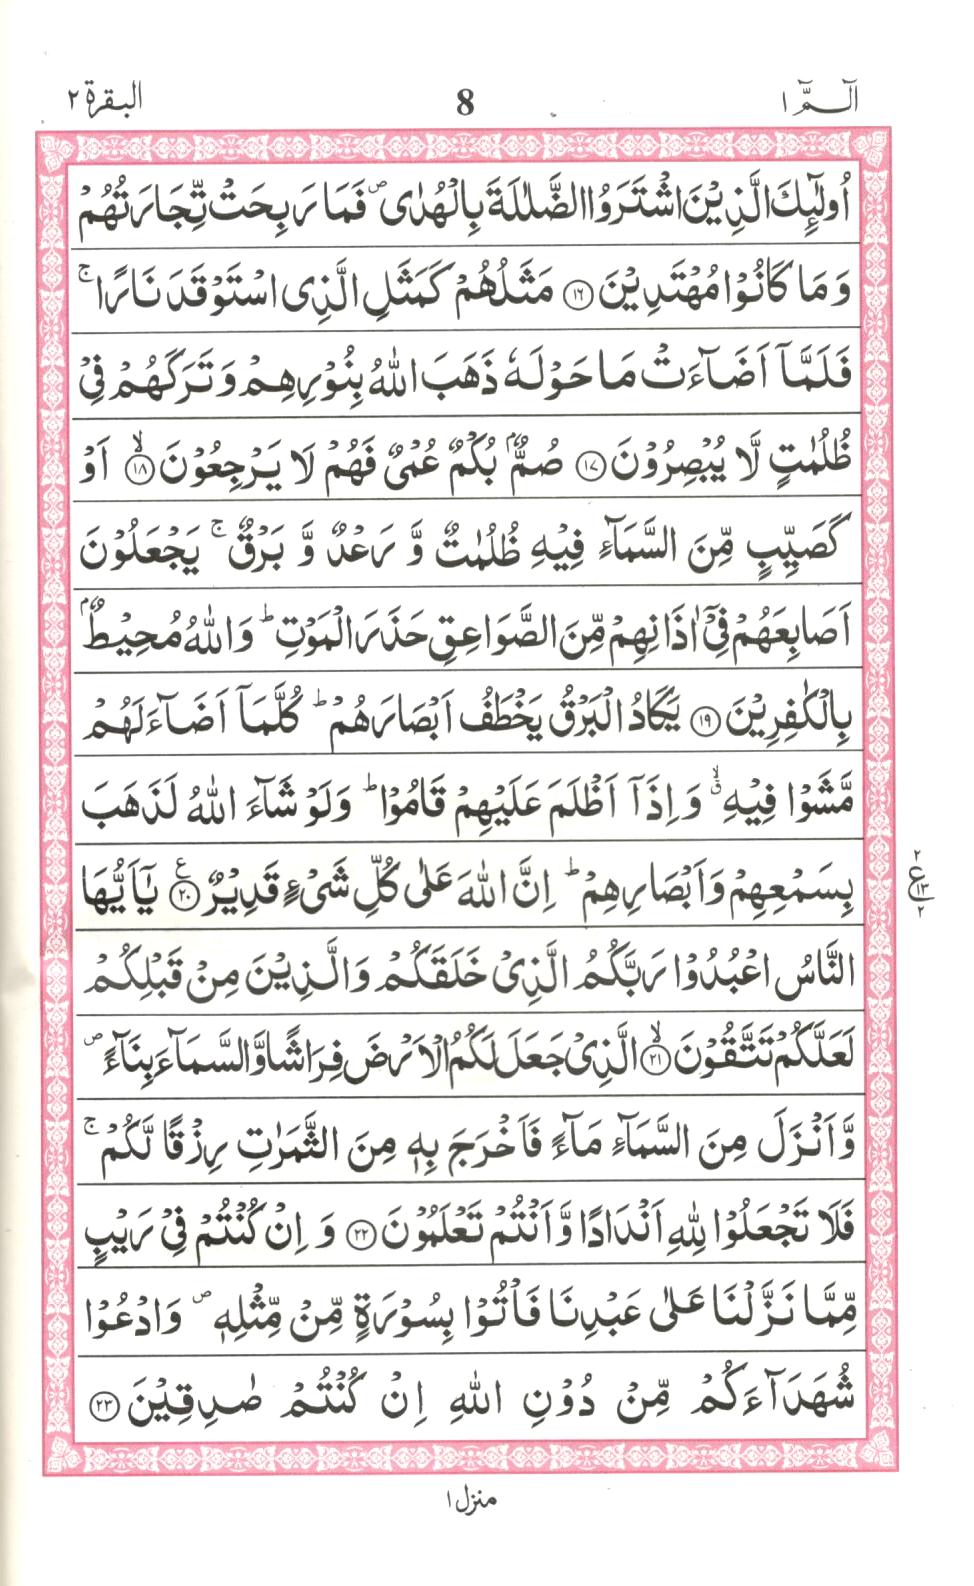 الٓـمّٓ ١ 8 البقرة ٢
اُولٰٓئِكَ الَّذِيْنَ اشْتَرَوُا الضَّلٰلَةَ بِالْهُدٰى ۪ فَمَا رَبِحَتْ تِّجَارَتُهُمْ
وَمَا كَانُوْا مُهْتَدِيْنَ ﴿١٦﴾ مَثَلُهُمْ كَمَثَلِ الَّذِى اسْتَوْقَدَ نَارًا ۚ
فَلَمَّآ اَضَآءَتْ مَا حَوْلَهٗ ذَهَبَ اللّٰهُ بِنُوْرِهِمْ وَتَرَكَهُمْ فِىْ
ظُلُمٰتٍ لَّا يُبْصِرُوْنَ ﴿١٧﴾ صُمٌّۢ بُكْمٌ عُمْىٌ فَهُمْ لَا يَرْجِعُوْنَ ۙ﴿١٨﴾ اَوْ
كَصَيِّبٍ مِّنَ السَّمَآءِ فِيْهِ ظُلُمٰتٌ وَّ رَعْدٌ وَّ بَرْقٌ ۚ يَجْعَلُوْنَ
اَصَابِعَهُمْ فِىْٓ اٰذَانِهِمْ مِّنَ الصَّوَاعِقِ حَذَرَ الْمَوْتِ ؕ وَاللّٰهُ مُحِيْطٌۢ
بِالْكٰفِرِيْنَ ﴿١٩﴾ يَكَادُ الْبَرْقُ يَخْطَفُ اَبْصَارَهُمْ ؕ كُلَّمَآ اَضَآءَ لَهُمْ
مَّشَوْا فِيْهِ ۙ وَاِذَآ اَظْلَمَ عَلَيْهِمْ قَامُوْا ؕ وَلَوْ شَآءَ اللّٰهُ لَذَهَبَ
بِسَمْعِهِمْ وَاَبْصَارِهِمْ ؕ اِنَّ اللّٰهَ عَلٰى كُلِّ شَىْءٍ قَدِيْرٌ ﴿٢٠﴾ ع يٰٓاَيُّهَا
النَّاسُ اعْبُدُوْا رَبَّكُمُ الَّذِىْ خَلَقَكُمْ وَالَّذِيْنَ مِنْ قَبْلِكُمْ
لَعَلَّكُمْ تَتَّقُوْنَ ۙ﴿٢١﴾ الَّذِىْ جَعَلَ لَكُمُ الْاَرْضَ فِرَاشًا وَّالسَّمَآءَ بِنَآءً ۪
وَّاَنْزَلَ مِنَ السَّمَآءِ مَآءً فَاَخْرَجَ بِهٖ مِنَ الثَّمَرٰتِ رِزْقًا لَّكُمْ ۚ
فَلَا تَجْعَلُوْا لِلّٰهِ اَنْدَادًا وَّاَنْتُمْ تَعْلَمُوْنَ ﴿٢٢﴾ وَ اِنْ كُنْتُمْ فِىْ رَيْبٍ
مِّمَّا نَزَّلْنَا عَلٰى عَبْدِنَا فَاْتُوْا بِسُوْرَةٍ مِّنْ مِّثْلِهٖ ۪ وَادْعُوْا
شُهَدَآءَكُمْ مِّنْ دُوْنِ اللّٰهِ اِنْ كُنْتُمْ صٰدِقِيْنَ ﴿٢٣﴾
٢
ع ١٣
٢
منزل ١